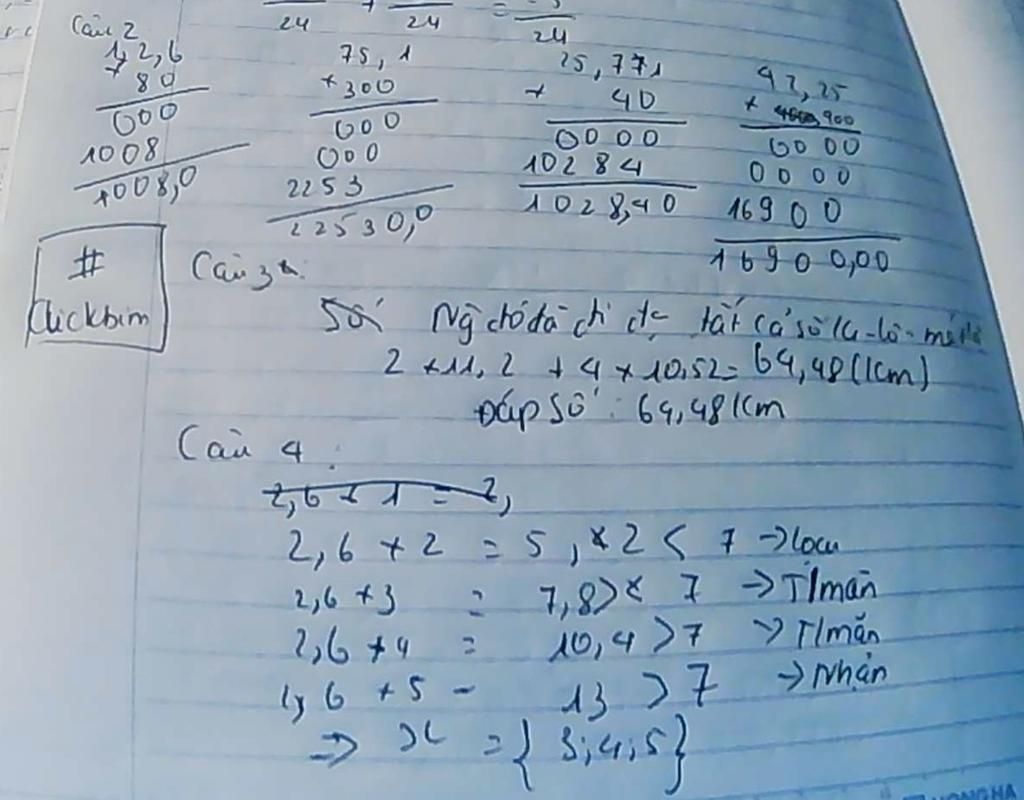 24 + 24 = 24
Câu 2
12,6 75,1 25,771 42,25
× 80 × 300 × 40 × 900
000 000 0000 0000
1008 000 10284 0000
1008,0 2253 1028,40 16900
22530,0 16900,00
#
Clickbim
Câu 3
tất cả số
2 × 11,2 + 4 × 10,52 = 64,48 (km)
Đáp số: 64,48 km
Câu 4:
2,6 × 1 = 2,
2,6 × 2 = 5,2 < 7 →
2,6 × 3 = 7,8 > 7 → T/mãn
2,6 × 4 = 10,4 > 7 → T/mãn
6 × 5 = 13 > 7 → Nhận
=> x = { 3; 4; 5 }
HONG HA